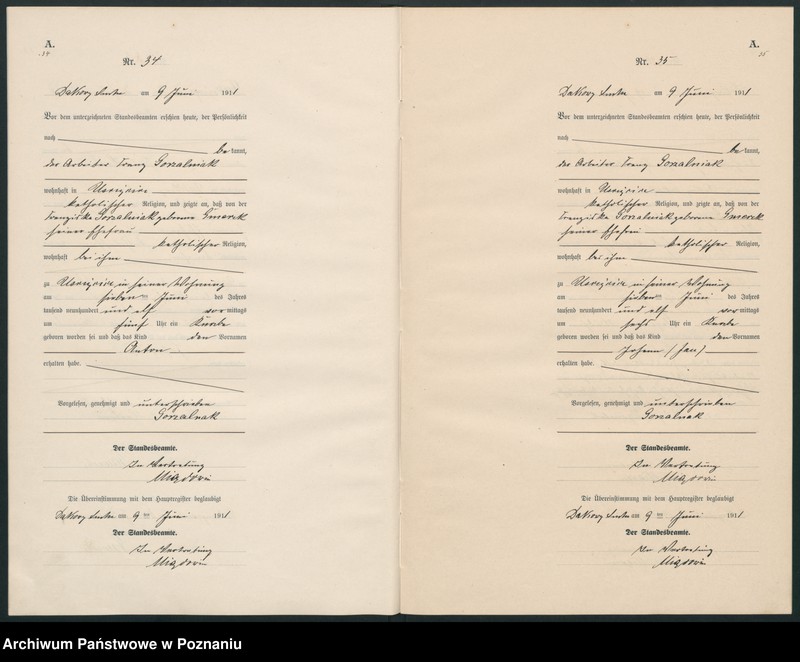 A.
14
Nr. 34
am 9 Juni 1911
Vor dem unterzeichneten Standesbeamten erschien heute, der Persönlichkeit
nach
be kannt,
der Arbeiter Franz Gorzalniak
wohnhaft in
katholischer Religion, und zeigte an, daß von der
Franziska Gorzalniak geborene
seiner Ehefrau
katholischer Religion,
wohnhaft bei ihm
zu in seiner Wohnung
am sieben ten Juni des Jahres
tausend neunhundert und elf vor mittags
um fünf Uhr ein Knabe
geboren worden sei und daß das Kind den Vornamen
Anton
erhalten habe.
Vorgelesen, genehmigt und unterschrieben
Gorzalniak
Der Standesbeamte.
In Vertretung
Die Übereinstimmung mit dem Hauptregister beglaubigt
am 9 ten Juni 1911
Der Standesbeamte.
In Vertretung
A.
15
Nr. 35
am 9 Juni 1911
Vor dem unterzeichneten Standesbeamten erschien heute, der Persönlichkeit
nach
be kannt,
der Arbeiter Franz Gorzalniak
wohnhaft in
katholischer Religion, und zeigte an, daß von der
Franziska Gorzalniak geborene
seiner Ehefrau
katholischer Religion,
wohnhaft bei ihm
zu in seiner Wohnung
am sieben ten Juni des Jahres
tausend neunhundert und elf vor mittags
um sechs Uhr ein Knabe
geboren worden sei und daß das Kind den Vornamen
Johann (Jan)
erhalten habe.
Vorgelesen, genehmigt und unterschrieben
Gorzalniak
Der Standesbeamte.
In Vertretung
Die Übereinstimmung mit dem Hauptregister beglaubigt
am 9 ten Juni 1911
Der Standesbeamte.
In Vertretung
Archiwum Państwowe w Poznaniu